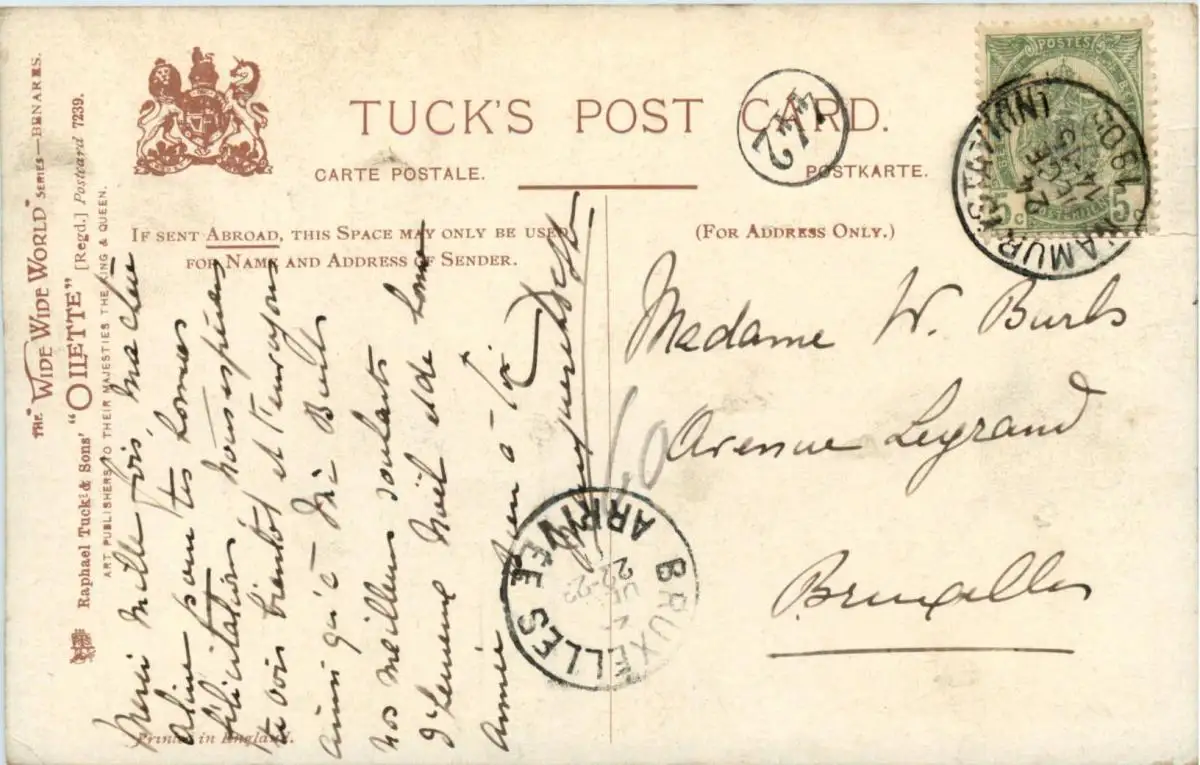 THE "WIDE WIDE WORLD" SERIES—BENARES.
Raphael Tuck & Sons' "OILETTE" [Regd.] Postcard 7239.
ART PUBLISHERS TO THEIR MAJESTIES THE KING & QUEEN.
TUCK'S POST CARD.
CARTE POSTALE.
POSTKARTE.
IF SENT ABROAD, THIS SPACE MAY ONLY BE USED
FOR NAME AND ADDRESS OF SENDER.
(FOR ADDRESS ONLY.)
POSTES
5 C
5 C
NAMUR (STATION)
24
DEC
1905
442
Merci mille fois, ma chère
Aline pour tes bonnes
félicitations nous espérons
te voir bientôt et t'envoyons
ainsi qu'à Mr Burls
nos meilleurs souhaits
d'heureux Noël et de bonne
Année
à toi
Madame W. Burls
Avenue Legrand
Bruxelles
BRUXELLES
ARRIVÉE
Printed in England.